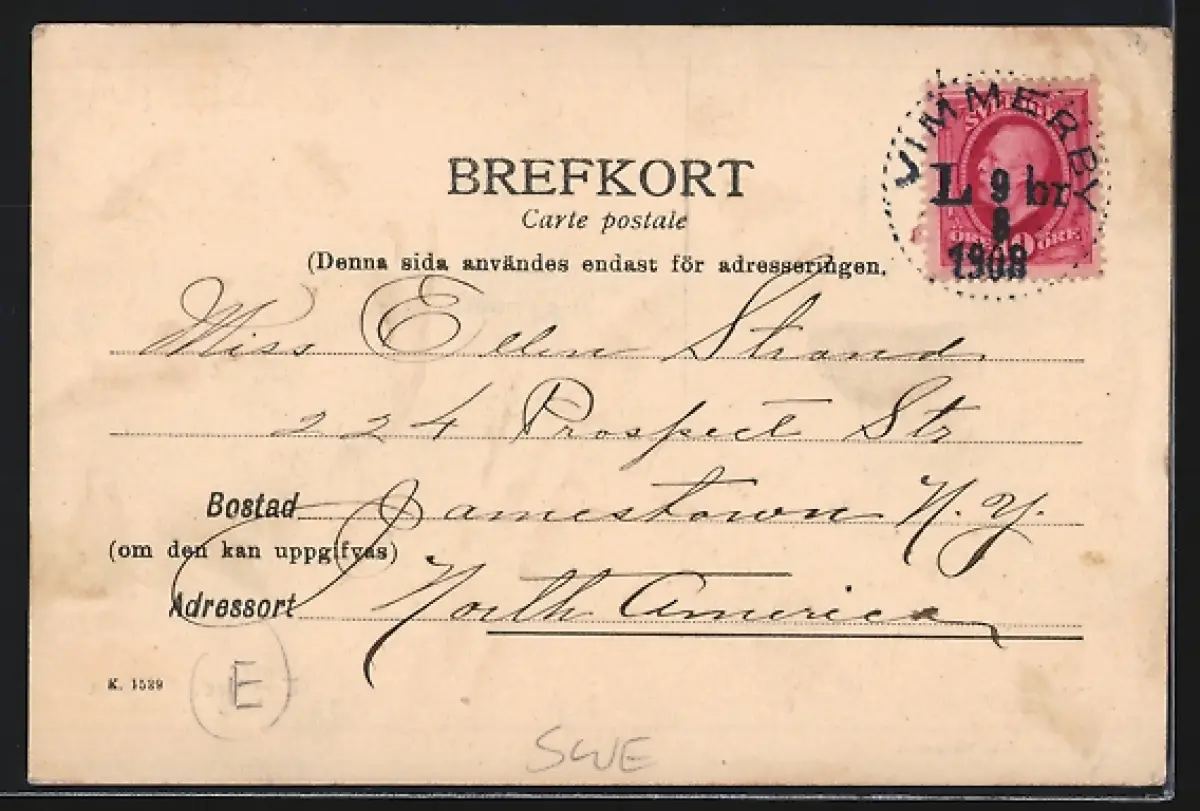 VIMMERBY
SVERIGE
L 9 br
8
1908
ÖRE 10 ÖRE
BREFKORT
Carte postale
(Denna sida användes endast för adresseringen.
Miss Ellen Strand
224 Prospect Str
Bostad Jamestown N.Y.
(om den kan uppgifvas)
Adressort North America
K. 1539
E
SWE